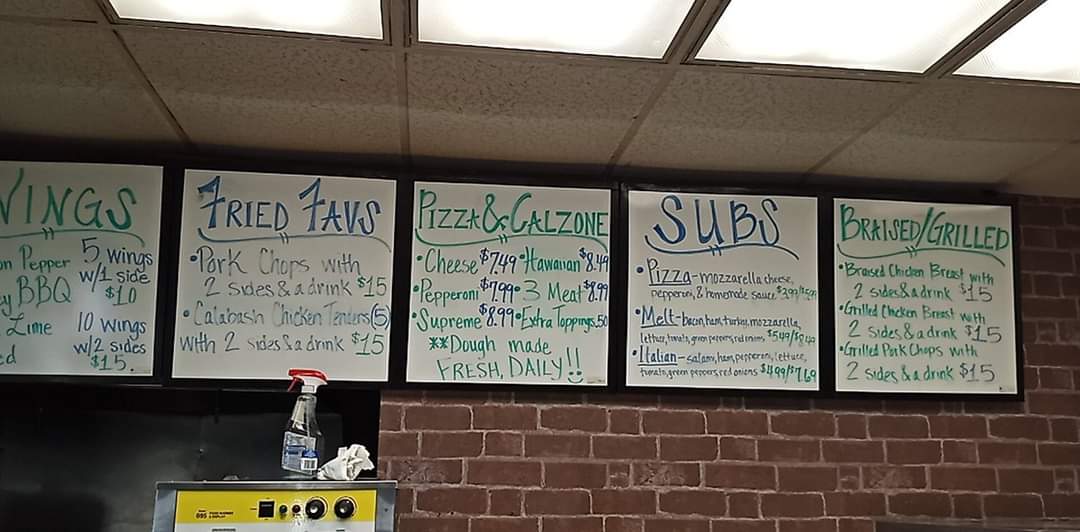 WINGS
on Pepper
5 wings
w/1 side
$10
ey BBQ
Lime
10 wings
w/2 sides
$15.
ed
FRIED FAVS
•Pork Chops with
2 sides & a drink $15
•Calabash Chicken Tenders (5)
with 2 sides & a drink $15
PIZZA & CALZONE
•Cheese $7.49 •Hawaiian $8.49
•Pepperoni $7.99 •3 Meat $8.99
•Supreme $8.99 •Extra Toppings .50
**Dough made
FRESH, DAILY!!
SUBS
•Pizza - mozzarella cheese,
pepperoni, & homemade sauce $3.99/
•Melt - bacon, ham, turkey, mozzarella,
lettuce, tomato, green peppers, red onions $5.49/
•Italian - salami, ham, pepperoni, lettuce,
tomato, green peppers, red onions $4.99/$7.69
BRAISED/GRILLED
•Braised Chicken Breast with
2 sides & a drink $15
•Grilled Chicken Breast with
2 sides & a drink $15
•Grilled Pork Chops with
2 sides & a drink $15